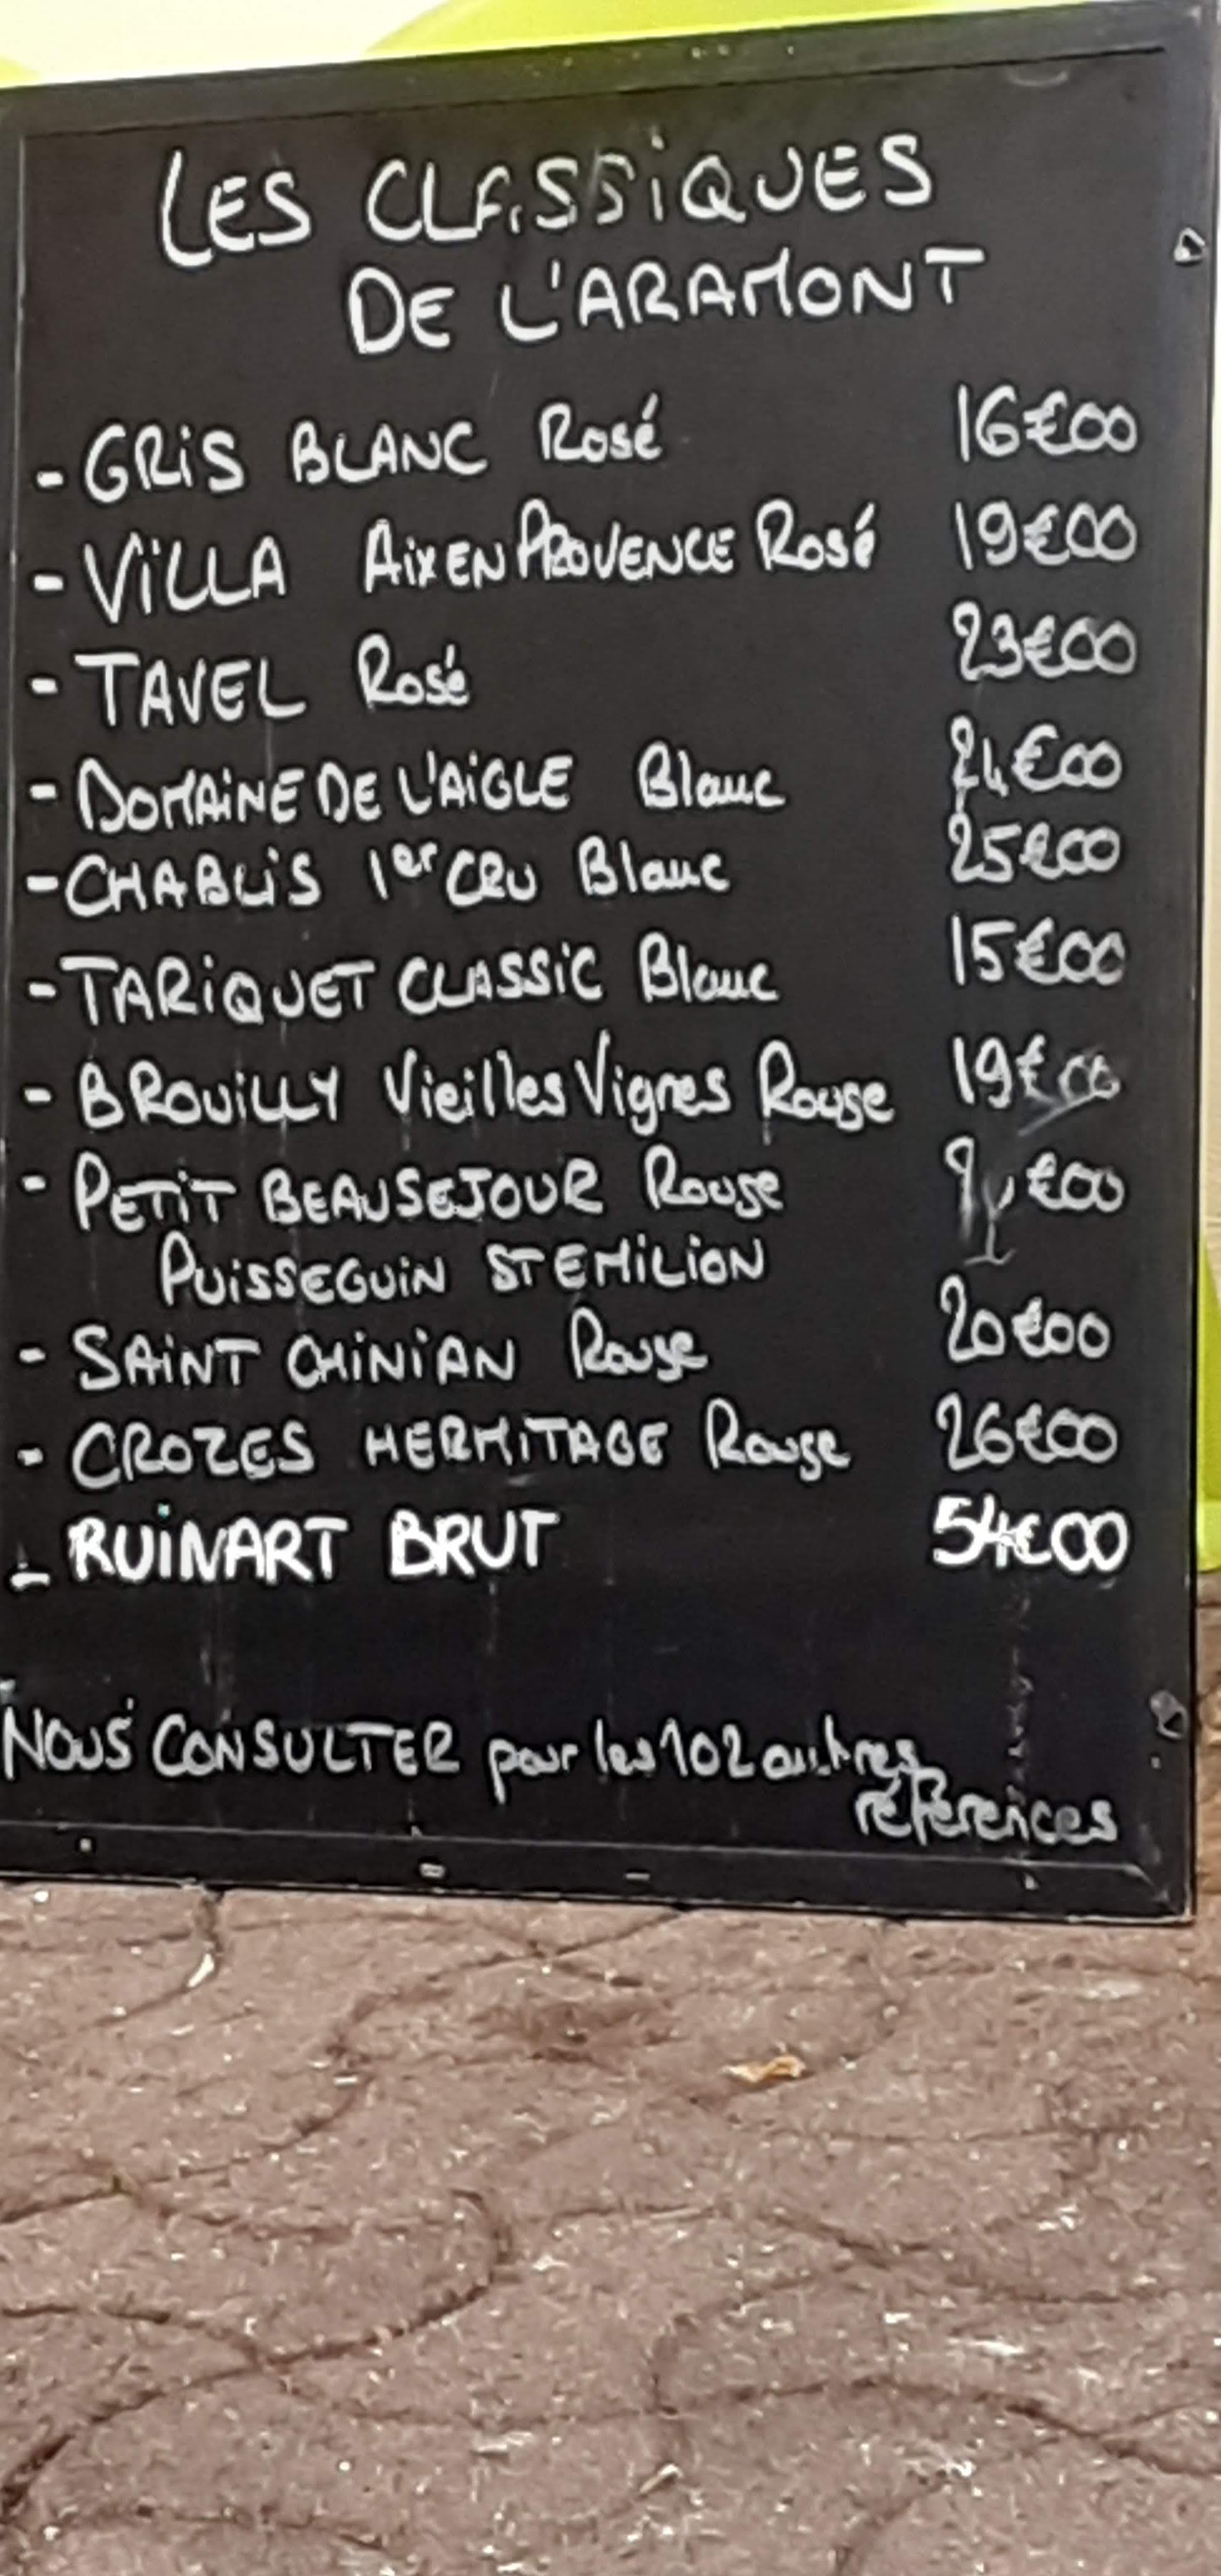 LES CLASSiQUES
DE L'ARAMONT
- GRiS BLANC Rosé 16€00
- ViLLA AiX EN PROVENCE Rosé 19€00
- TAVEL Rosé 23€00
- DOMAiNE DE L'AiGLE Blanc 24€00
- CHABLiS 1er CRU Blanc 25€00
- TARiQUET CLASSiC Blanc 15€00
- BROUiLLY Vieilles Vignes Rouge 19€00
- PETiT BEAUSEJOUR Rouge €00
PUiSSEGUiN ST EMiLiON
- SAiNT CHiNiAN Rouge 20€00
- CROZES HERMiTAGE Rouge 26€00
- RUiNART BRUT 54€00
NOUS CONSULTER pour les 102 autres
références